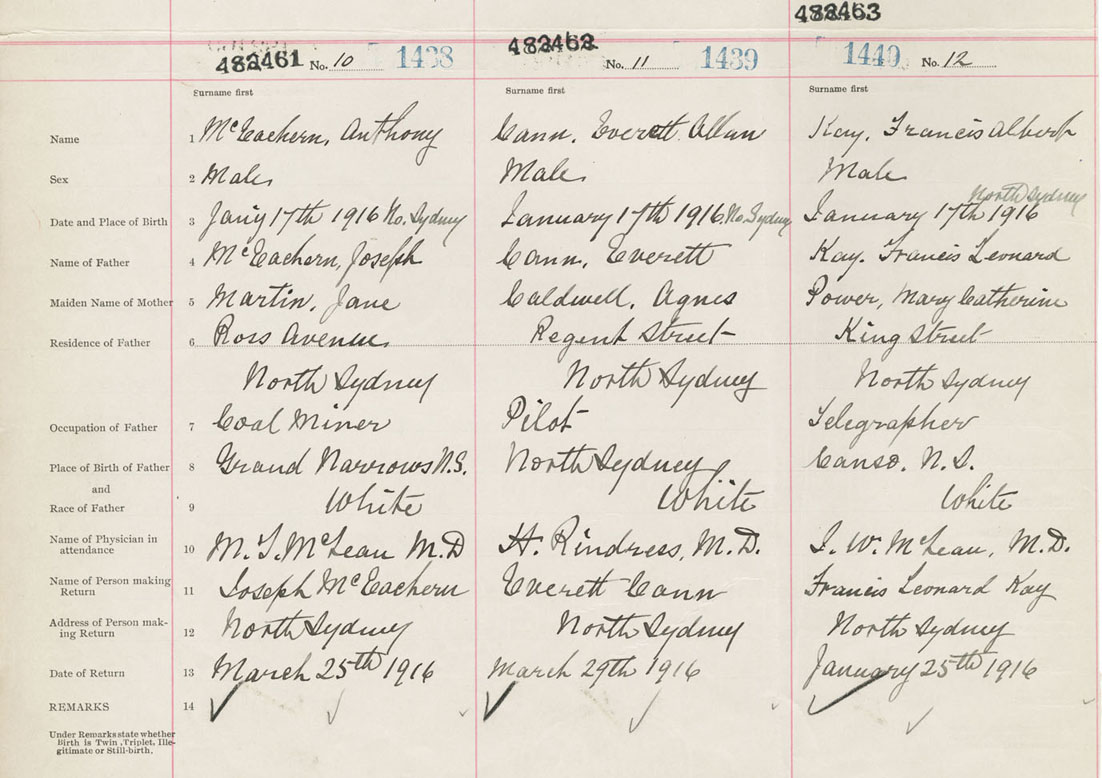 482463
482461 No. 10 1438
482462 No. 11 1439
1440 No. 12
Surname first Surname first Surname first
Name 1 McEachern, Anthony Cann, Everett Allan Kay, Francis Albert
Sex 2 Male Male Male
North Sydney
Date and Place of Birth 3 Jan'y 17th 1916 No. Sydney January 17th 1916 No. Sydney January 17th 1916
Name of Father 4 McEachern, Joseph Cann, Everett Kay, Francis Leonard
Maiden Name of Mother 5 Martin, Jane Caldwell, Agnes Power, Mary Catherine
Residence of Father 6 Ross Avenue Regent Street King Street
North Sydney North Sydney North Sydney
Occupation of Father 7 Coal Miner Pilot Telegrapher
Place of Birth of Father 8 Grand Narrows N.S. North Sydney Canso, N.S.
and
Race of Father 9 White White White
Name of Physician in
attendance 10 M.T. McLean M.D H. Rindress, M.D. J. W. McLean, M.D.
Name of Person making
Return 11 Joseph McEachern Everett Cann Francis Leonard Kay
Address of Person mak-
ing Return 12 North Sydney North Sydney North Sydney
Date of Return 13 March 25th 1916 March 29th 1916 January 25th 1916
REMARKS 14
Under Remarks state whether
Birth is Twin, Triplet, Ille-
gitimate or Still-birth.